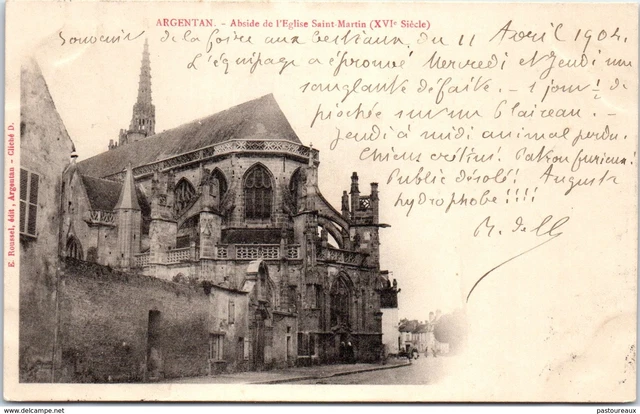 ARGENTAN. - Abside de l'Eglise Saint-Martin (XVIe Siècle)
Souvenir de la foire aux bestiaux du 11 Avril 1904.
L'équipage a éprouvé Mercredi et Jeudi une
sanglante défaite. - 1 jour! de
piochée sur un blaireau. -
Jeudi à midi animal perdu.
Chiens crétins! Patron furieux!
Public désolé! Auguste
hydrophobe !!!!
R. de
E. Roussel, édit, Argentan - Cliché D.
www.delcampe.net
pastoureaux